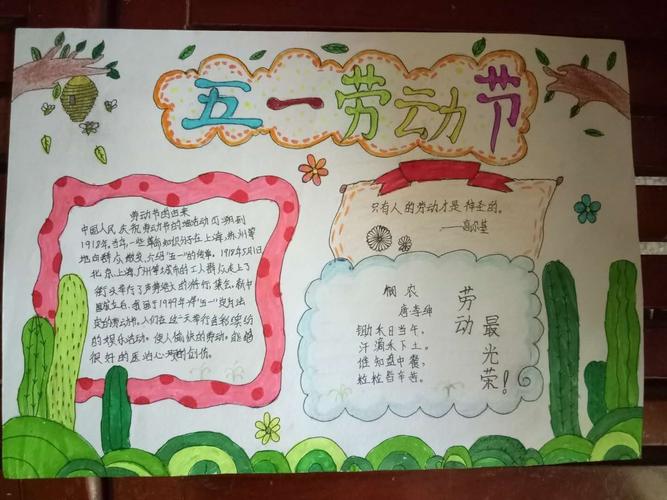 五一劳动节
劳动节的由来
中国人民庆祝劳动节的活动可追溯到
1918年,当年一些革命知识分子在上海,苏州等
地向群众散发介绍"五一"的传单,1918年5月1日
北京,上海,广州等城市的工人群众走上了
街头举行了声势浩大的游行,集会,新中
国成立后,我国于1949年将"五一"定为法
定的劳动节,人们在这一天举行多彩缤纷
的娱乐活动,使人愉快的劳动,能够
很好的医治心创伤。
只有人的劳动才是神圣的。
——高尔基
悯农
唐·李绅
锄禾日当午,
汗滴禾下土。
谁知盘中餐,
粒粒皆辛苦。
劳动
最光荣!